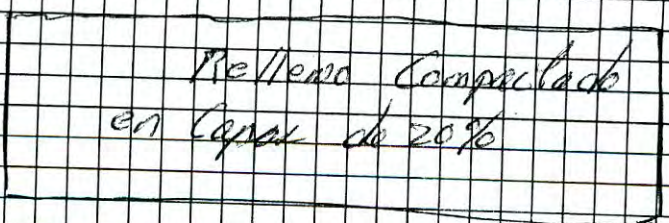 Relleno Compactado
en Capas de 20%